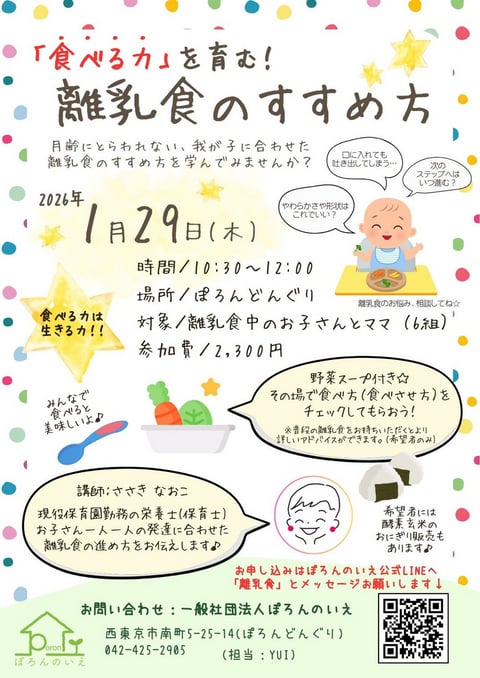 「食べる力」を育む!
離乳食のすすめ方
月齢にとらわれない、我が子に合わせた
離乳食のすすめ方を学んでみませんか?
口に入れても
吐き出してしまう…
次の
ステップへは
いつ進む?
やわらかさや形状は
これでいい?
2026年
1月29日(木)
離乳食のお悩み、相談してね☆
時間/10:30〜12:00
場所/ぽろんどんぐり
対象/離乳食中のお子さんとママ(6組)
参加費/2,300円
食べる力は
生きる力!!
みんなで
食べると
美味しいよ♪
野菜スープ付き☆
その場で食べ方(食べさせ方)を
チェックしてもらおう!
※普段の離乳食をお持ちいただくとより
詳しいアドバイスができます。(希望者のみ)
講師:ささき なおこ
現役保育園勤務の栄養士(保育士)
お子さん一人一人の発達に合わせた
離乳食の進め方をお伝えします♪
希望者には
酵素玄米の
おにぎり販売も
あります♪
お申し込みはぽろんのいえ公式LINEへ
「離乳食」とメッセージお願いします↓
お問い合わせ:一般社団法人ぽろんのいえ
西東京市南町5-25-14(ぽろんどんぐり)
042-425-2905 (担当:YUI)
poron
ぽろんのいえ